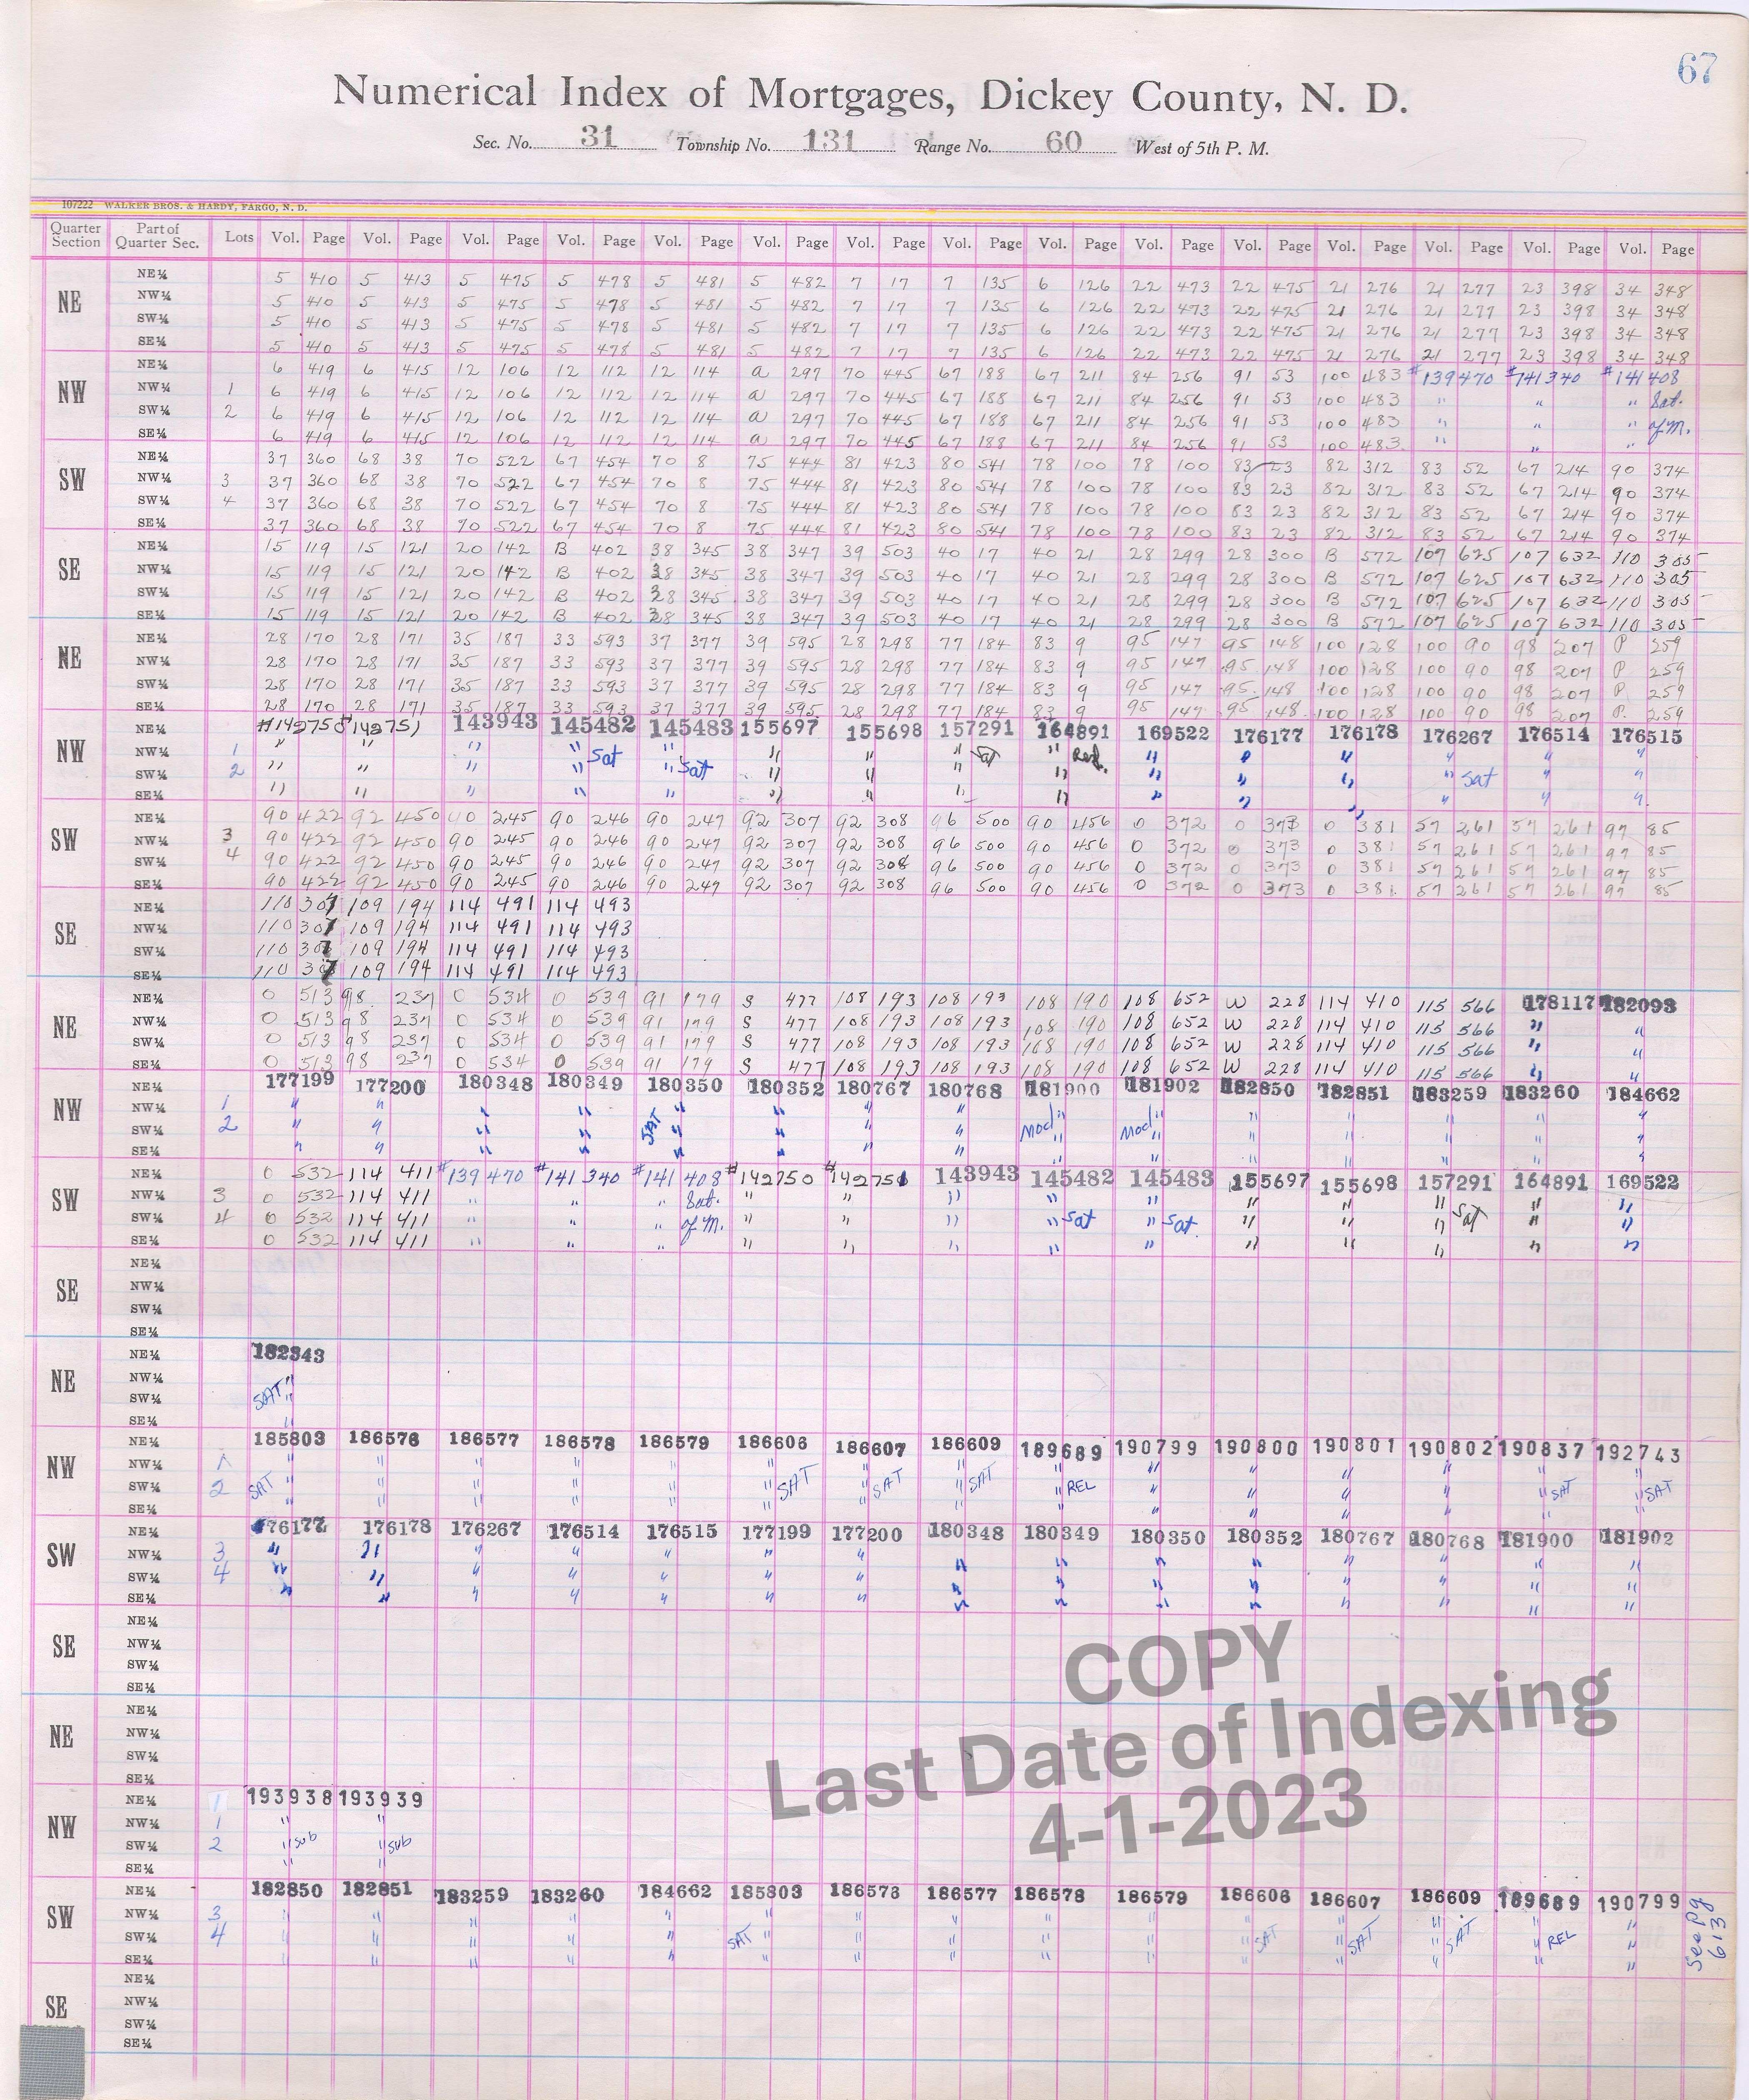 67
Numerical Index of Mortgages, Dickey County, N. D.
Sec. No. 31 Township No. 131 Range No. 60 West of 5th P. M.
107222 WALKER BROS. & HARDY, FARGO, N. D.
Quarter Section Part of Quarter Sec. Lots Vol. Page Vol. Page Vol. Page Vol. Page Vol. Page Vol. Page Vol. Page Vol. Page Vol. Page Vol. Page Vol. Page Vol. Page Vol. Page Vol. Page Vol. Page
NE NE¼ 5 410 5 413 5 475 5 478 5 481 5 482 7 17 7 135 6 126 22 473 22 475 21 276 21 277 23 398 34 348
NW¼ 5 410 5 413 5 475 5 478 5 481 5 482 7 17 7 135 6 126 22 473 22 475 21 276 21 277 23 398 34 348
SW¼ 5 410 5 413 5 475 5 478 5 481 5 482 7 17 7 135 6 126 22 473 22 475 21 276 21 277 23 398 34 348
SE¼ 5 410 5 413 5 475 5 478 5 481 5 482 7 17 7 135 6 126 22 473 22 475 21 276 21 277 23 398 34 348
NW NE¼ 6 419 6 415 12 106 12 112 12 114 a 297 70 445 67 188 67 211 84 256 91 53 100 483 #139470 #141340 #141408
NW¼ 1 6 419 6 415 12 106 12 112 12 114 a 297 70 445 67 188 67 211 84 256 91 53 100 483 " " " Sat.
SW¼ 2 6 419 6 415 12 106 12 112 12 114 a 297 70 445 67 188 67 211 84 256 91 53 100 483 " " " of M.
SE¼ 6 419 6 415 12 106 12 112 12 114 a 297 70 445 67 188 67 211 84 256 91 53 100 483 " " "
SW NE¼ 37 360 68 38 70 522 67 454 70 8 75 444 81 423 80 541 78 100 78 100 83 23 82 312 83 52 67 214 90 374
NW¼ 3 37 360 68 38 70 522 67 454 70 8 75 444 81 423 80 541 78 100 78 100 83 23 82 312 83 52 67 214 90 374
SW¼ 4 37 360 68 38 70 522 67 454 70 8 75 444 81 423 80 541 78 100 78 100 83 23 82 312 83 52 67 214 90 374
SE¼ 37 360 68 38 70 522 67 454 70 8 75 444 81 423 80 541 78 100 78 100 83 23 82 312 83 52 67 214 90 374
SE NE¼ 15 119 15 121 20 142 B 402 38 345 38 347 39 503 40 17 40 21 28 299 28 300 B 572 107 625 107 632 110 305
NW¼ 15 119 15 121 20 142 B 402 38 345 38 347 39 503 40 17 40 21 28 299 28 300 B 572 107 625 107 632 110 305
SW¼ 15 119 15 121 20 142 B 402 38 345 38 347 39 503 40 17 40 21 28 299 28 300 B 572 107 625 107 632 110 305
SE¼ 15 119 15 121 20 142 B 402 38 345 38 347 39 503 40 17 40 21 28 299 28 300 B 572 107 625 107 632 110 305
NE NE¼ 28 170 28 171 35 187 33 593 37 377 39 595 28 298 77 184 83 9 95 147 95 148 100 128 100 90 98 207 P 259
NW¼ 28 170 28 171 35 187 33 593 37 377 39 595 28 298 77 184 83 9 95 147 95 148 100 128 100 90 98 207 P 259
SW¼ 28 170 28 171 35 187 33 593 37 377 39 595 28 298 77 184 83 9 95 147 95 148 100 128 100 90 98 207 P 259
SE¼ 28 170 28 171 35 187 33 593 37 377 39 595 28 298 77 184 83 9 95 147 95 148 100 128 100 90 98 207 P. 259
NW NE¼ #142750 #142751 143943 145482 145483 155697 155698 157291 164891 169522 176177 176178 176267 176514 176515
NW¼ 1 " " " " Sat " " " " Sat " Rel. " " " " " "
SW¼ 2 " " " " " Sat " " " " " " " " Sat " "
SE¼ " " " " " " " " " " " " " " "
SW NE¼ 90 422 92 450 90 245 90 246 90 247 92 307 92 308 96 500 90 456 0 372 0 373 0 381 57 261 57 261 97 85
NW¼ 3 90 422 92 450 90 245 90 246 90 247 92 307 92 308 96 500 90 456 0 372 0 373 0 381 57 261 57 261 97 85
SW¼ 4 90 422 92 450 90 245 90 246 90 247 92 307 92 308 96 500 90 456 0 372 0 373 0 381 57 261 57 261 97 85
SE¼ 90 422 92 450 90 245 90 246 90 247 92 307 92 308 96 500 90 456 0 372 0 373 0 381 57 261 57 261 97 85
SE NE¼ 110 307 109 194 114 491 114 493
NW¼ 110 307 109 194 114 491 114 493
SW¼ 110 307 109 194 114 491 114 493
SE¼ 110 307 109 194 114 491 114 493
NE NE¼ 0 513 98 237 0 534 0 539 91 179 S 477 108 193 108 193 108 190 108 652 W 228 114 410 115 566 178117 182093
NW¼ 0 513 98 237 0 534 0 539 91 179 S 477 108 193 108 193 108 190 108 652 W 228 114 410 115 566 " "
SW¼ 0 513 98 237 0 534 0 539 91 179 S 477 108 193 108 193 108 190 108 652 W 228 114 410 115 566 " "
SE¼ 0 513 98 237 0 534 0 539 91 179 S 477 108 193 108 193 108 190 108 652 W 228 114 410 115 566 " "
NW NE¼ 177199 177200 180348 180349 180350 180352 180767 180768 181900 181902 182850 182851 183259 183260 184662
NW¼ 1 " " " " " " " " " " " " " " "
SW¼ 2 " " " " SAT " " " " Mod " Mod " " " " " "
SE¼ " " " " " " " " " " " " " " "
SW NE¼ 0 532 114 411 #139470 #141340 #141408 #142750 #142751 143943 145482 145483 155697 155698 157291 164891 169522
NW¼ 3 0 532 114 411 " " " Sat. " " " " " " " " " "
SW¼ 4 0 532 114 411 " " " of M. " " " " Sat " Sat. " " " Sat " "
SE¼ 0 532 114 411 " " " " " " " " " " " " "
SE NE¼
NW¼
SW¼
SE¼
NE NE¼ 182343
NW¼ "
SW¼ SAT "
SE¼ "
NW NE¼ 185803 186576 186577 186578 186579 186606 186607 186609 189689 190799 190800 190801 190802 190837 192743
NW¼ 1 " " " " " " " " " " " " " " "
SW¼ 2 SAT " " " " " " SAT " SAT " SAT " REL " " " " " SAT " SAT
SE¼ " " " " " " " " " " " " " " "
SW NE¼ 176177 176178 176267 176514 176515 177199 177200 180348 180349 180350 180352 180767 180768 181900 181902
NW¼ 3 " " " " " " " " " " " " " " "
SW¼ 4 " " " " " " " " " " " " " " "
SE¼ " " " " " " " " " " " " " " "
SE NE¼
NW¼
SW¼
SE¼
COPY
Last Date of Indexing
4-1-2023
NE NE¼
NW¼
SW¼
SE¼
NW NE¼ 1 193938 193939
NW¼ 1 " "
SW¼ 2 " Sub " Sub
SE¼ " "
SW NE¼ 182850 182851 183259 183260 184662 185803 186576 186577 186578 186579 186606 186607 186609 189689 190799
NW¼ 3 " " " " " " " " " " " " " " "
SW¼ 4 " " " " " SAT " " " " " " SAT " SAT " SAT " REL "
SE¼ " " " " " " " " " " " " " " "
See pg 613
SE NE¼
NW¼
SW¼
SE¼